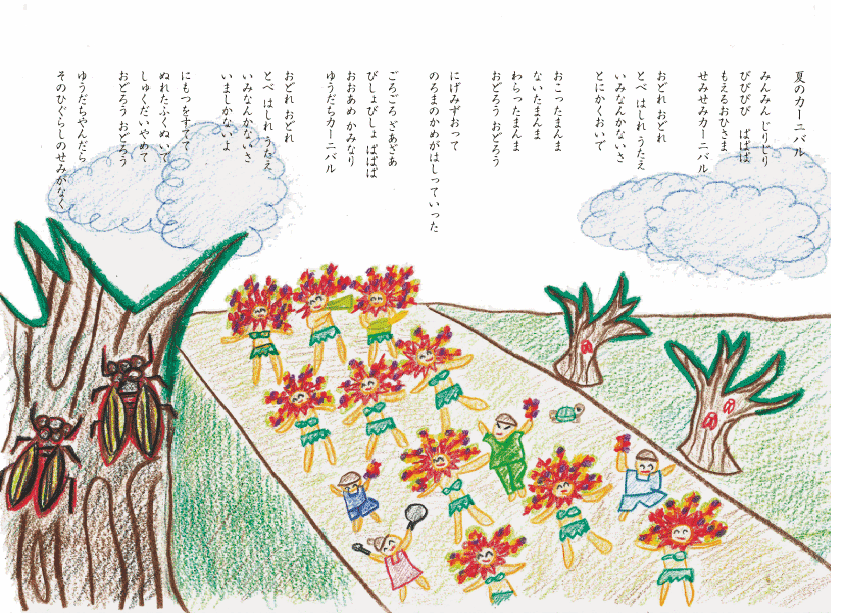 夏のカーニバル
みんみん じりじり
びびびび ばばば
もえるおひさま
せみせみカーニバル
おどれ おどれ
とべ はしれ うたえ
いみなんかないさ
とにかくおいで
おこったまんま
ないたまんま
わらったまんま
おどろう おどろう
にげみずおって
のろまのかめがはしっていった
ごろごろ ざあざあ
びしょびしょ ばばば
おおあめ かみなり
ゆうだちカーニバル
おどれ おどれ
とべ はしれ うたえ
いみなんかないさ
いましかないよ
にもつをすてて
ぬれたふくぬいで
しゅくだいやめて
おどろう おどろう
ゆうだちやんだら
そのひぐらしのせみがなく